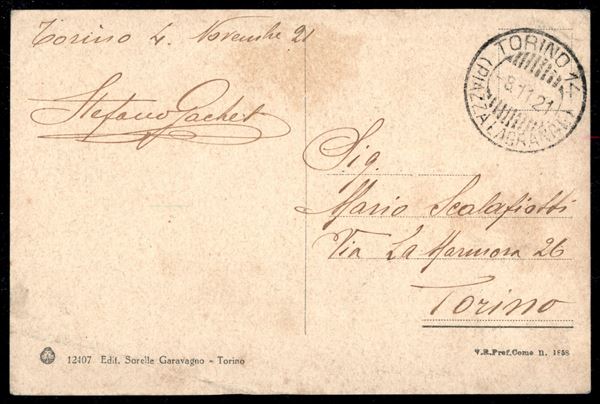 Torino 4. Novembre 21
Stefano Gachet
TORINO 14
(PIAZZA LAGRANGE)
8.11.21
Sig.
Mario Scalafiotti
Via La Marmora 26
Torino
12407 Edit. Sorelle Garavagno - Torino
V.R.Pref.Como n. 1858